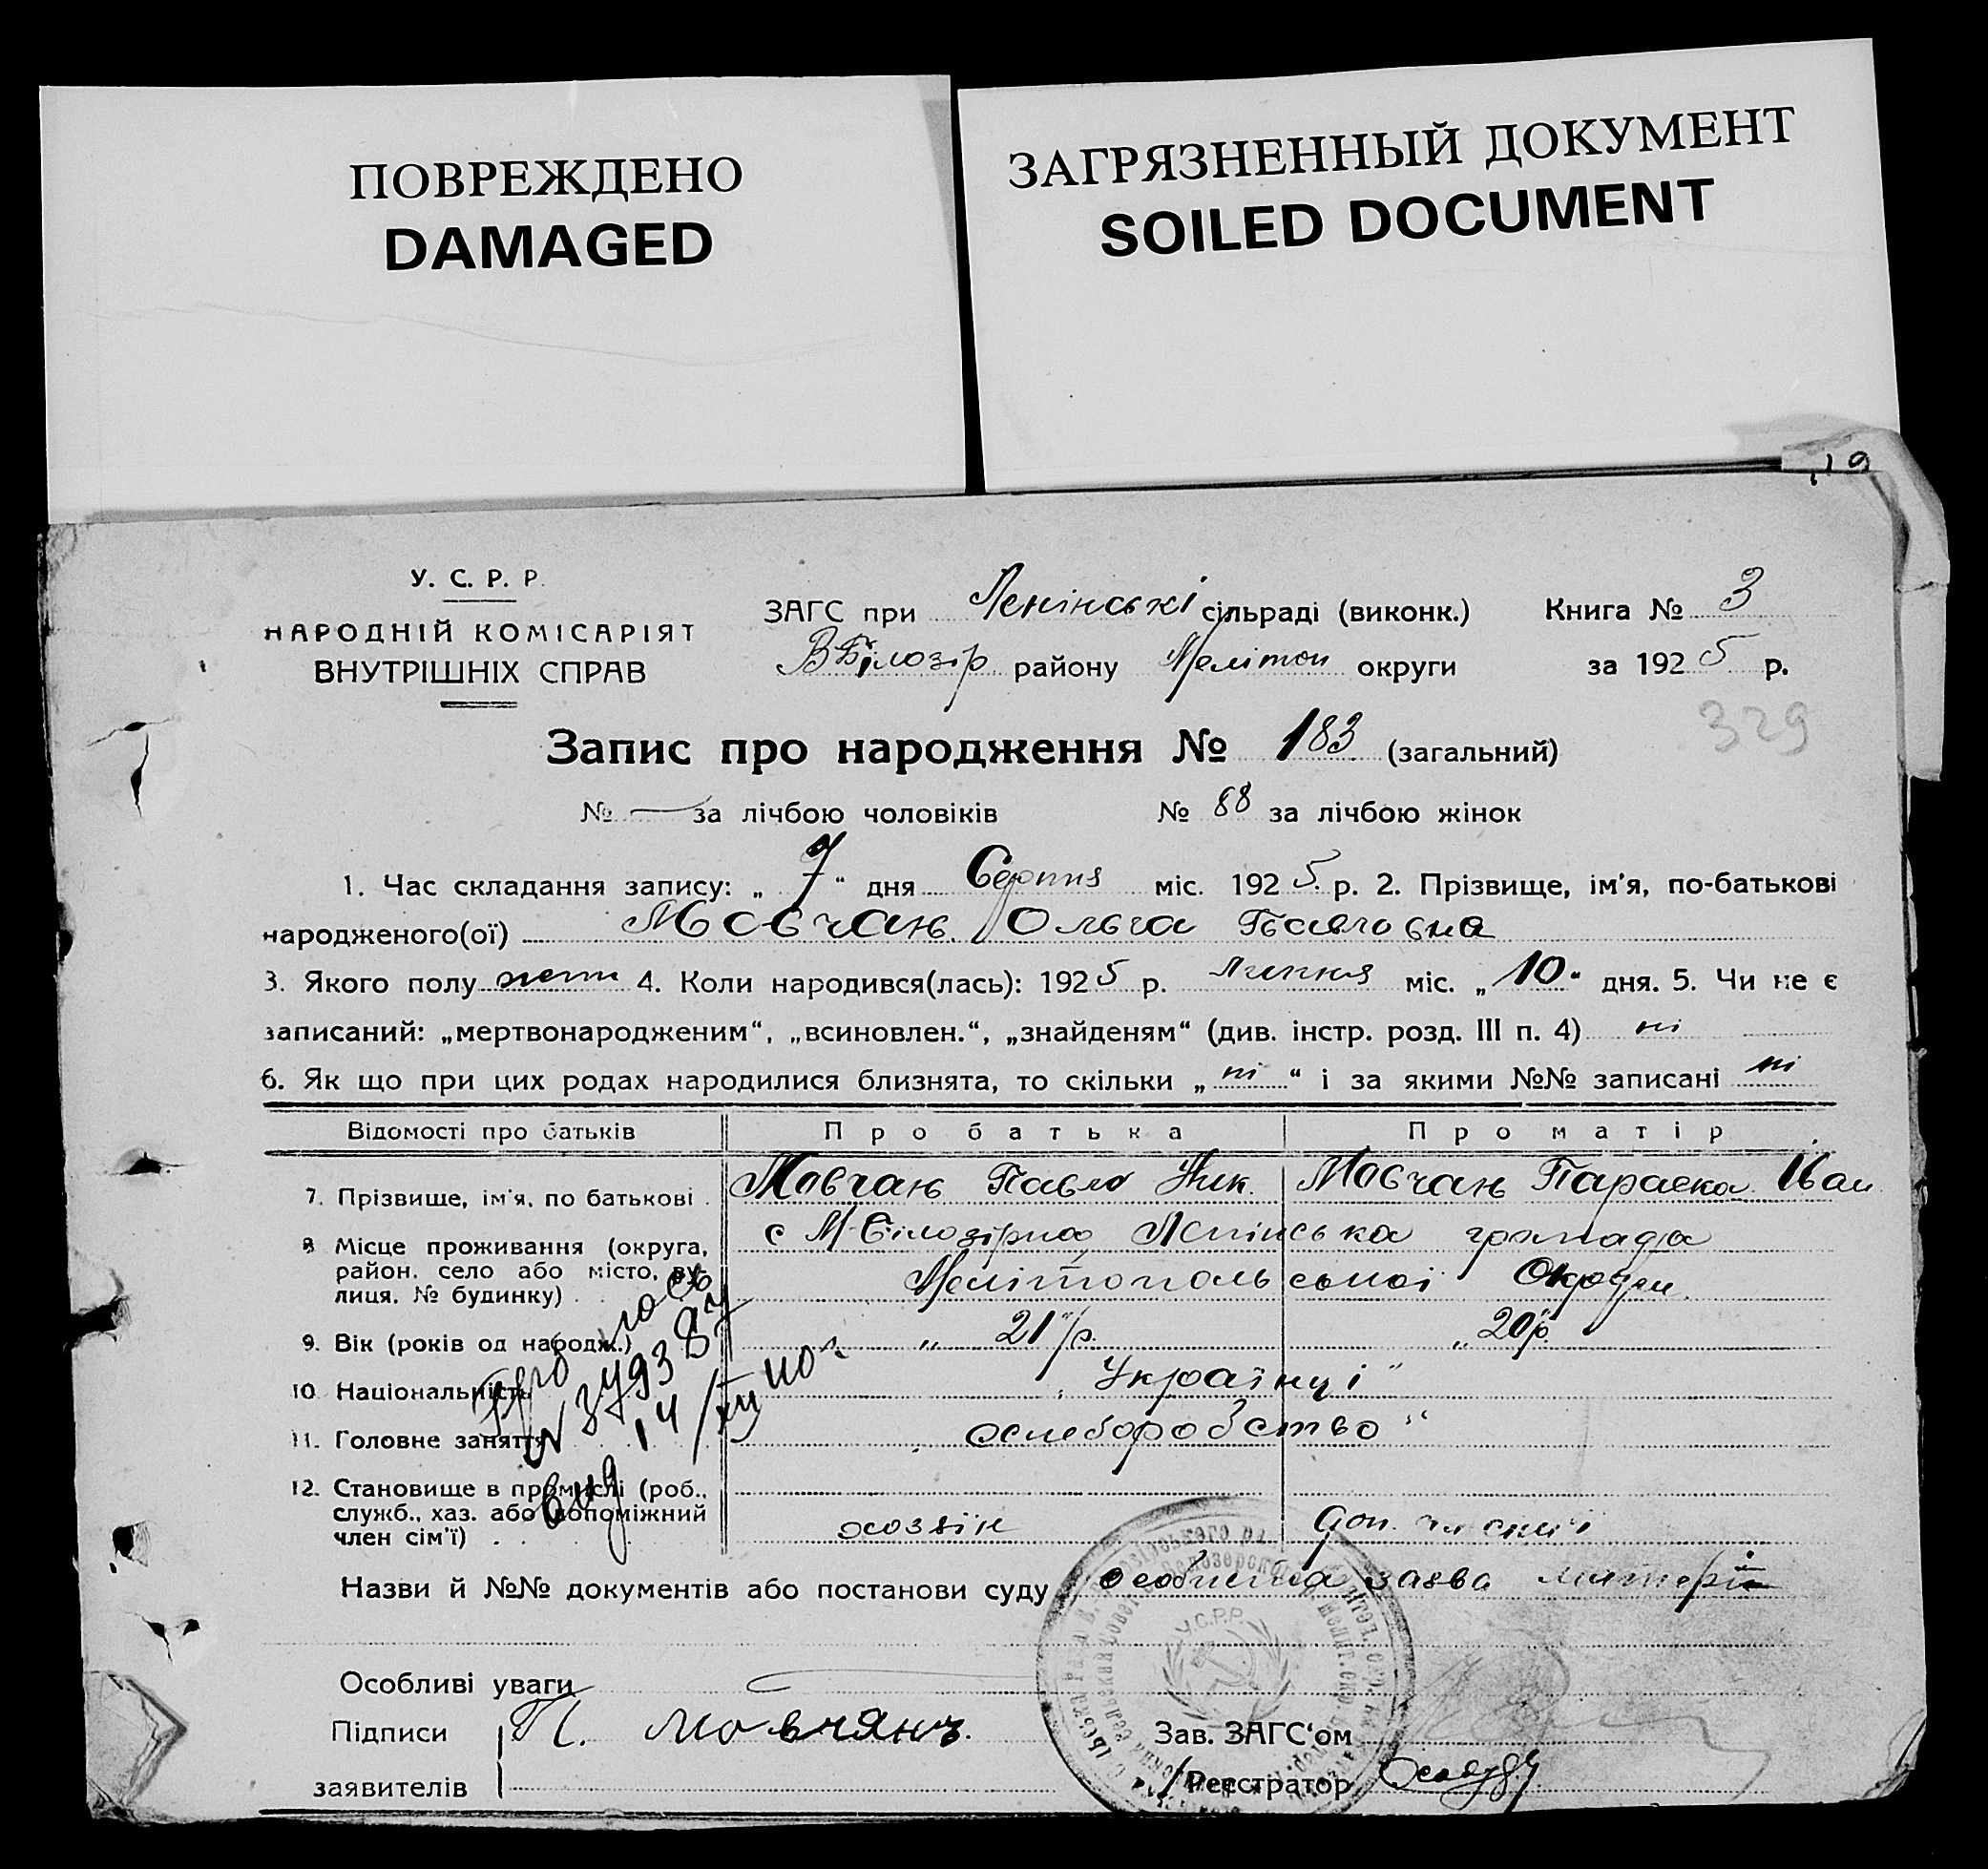 ПОВРЕЖДЕНО
DAMAGED
ЗАГРЯЗНЕННЫЙ ДОКУМЕНТ
SOILED DOCUMENT
У. С. Р. Р.
НАРОДНІЙ КОМІСАРІЯТ
ВНУТРІШНІХ СПРАВ
ЗАГС при Ленінські сільраді (виконк.) Книга № 3
ВБілозір району Мелітоп округи за 1925 р.
329
Запис про народження № 183 (загальний)
№ — за лічбою чоловіків № 88 за лічбою жінок
1. Час складання запису: „ 7 “ дня Серпня міс. 1925 р. 2. Прізвище, ім'я, по-батькові
народженого(ої) Мовчан Ольга Павловна
3. Якого полу жети 4. Коли народився(лась): 1925 р. липня міс. „ 10 “ дня. 5. Чи не є
записаний: „мертвонародженим“, „всиновлен.“, „знайденям“ (див. інстр. розд. III п. 4) ні
6. Як що при цих родах народилися близнята, то скільки „ ні “ і за якими №№ записані ні
Відомості про батьків Про батька Про матір
7. Прізвище, ім'я, по батькові Мовчан Павло Ник. Мовчан Параска Иван
8 Місце проживання (округа, район, село або місто, вулиця, № будинку) с М-Білозірка, Ленінська громада
Мелітопольської Округи
9. Вік (років од народж.) „ 21 р. „ 20 р.
10 Національність „Українці“
11. Головне заняття „хлеборобство“
12. Становище в промислі (роб.,
служб., хаз. або допоміжний
член сім'ї) хозяїн доп. чл сім'ї
№ 379387
14/XII 40 г.
Назви й №№ документів або постанови суду особиста заява матері
У.С.Р.Р.
Особливі уваги
Підписи П. Мовчянъ. Зав. ЗАГС'ом
заявителів Реєстратор